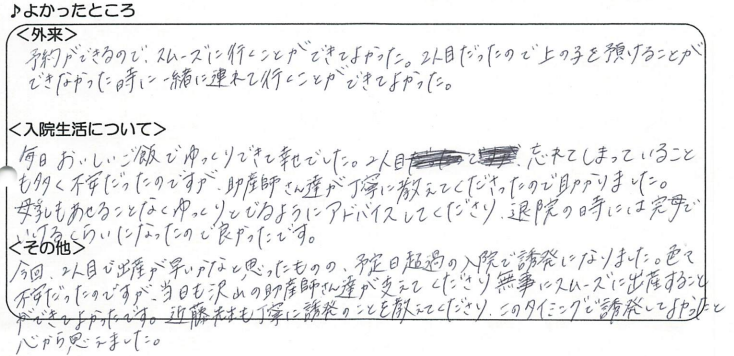 ♪よかったところ
<外来>
予約ができるので、スムーズに行くことができてよかった。2人目だったので上の子を預けることが
できなかった時に一緒に連れて行くことができてよかった。
<入院生活について>
毎日おいしいご飯でゆっくりできて幸せでした。2人目 忘れてしまっていること
も多く不安だったのですが、助産師さん達が丁寧に教えてくださったので助かりました。
母乳もあせることなくゆっくりとでるようにアドバイスしてくださり、退院の時には完母で
いけるくらいになったので良かったです。
<その他>
今回、2人目で出産が早いかなと思ったものの、予定日超過の入院で誘発になりました。色々
不安だったのですが、当日も沢山の助産師さん達が支えてくださり無事にスムーズに出産すること
ができてよかったです。近藤先生も丁寧に誘発のことを教えてくださり、このタイミングで誘発してよかったと
心から思えました。